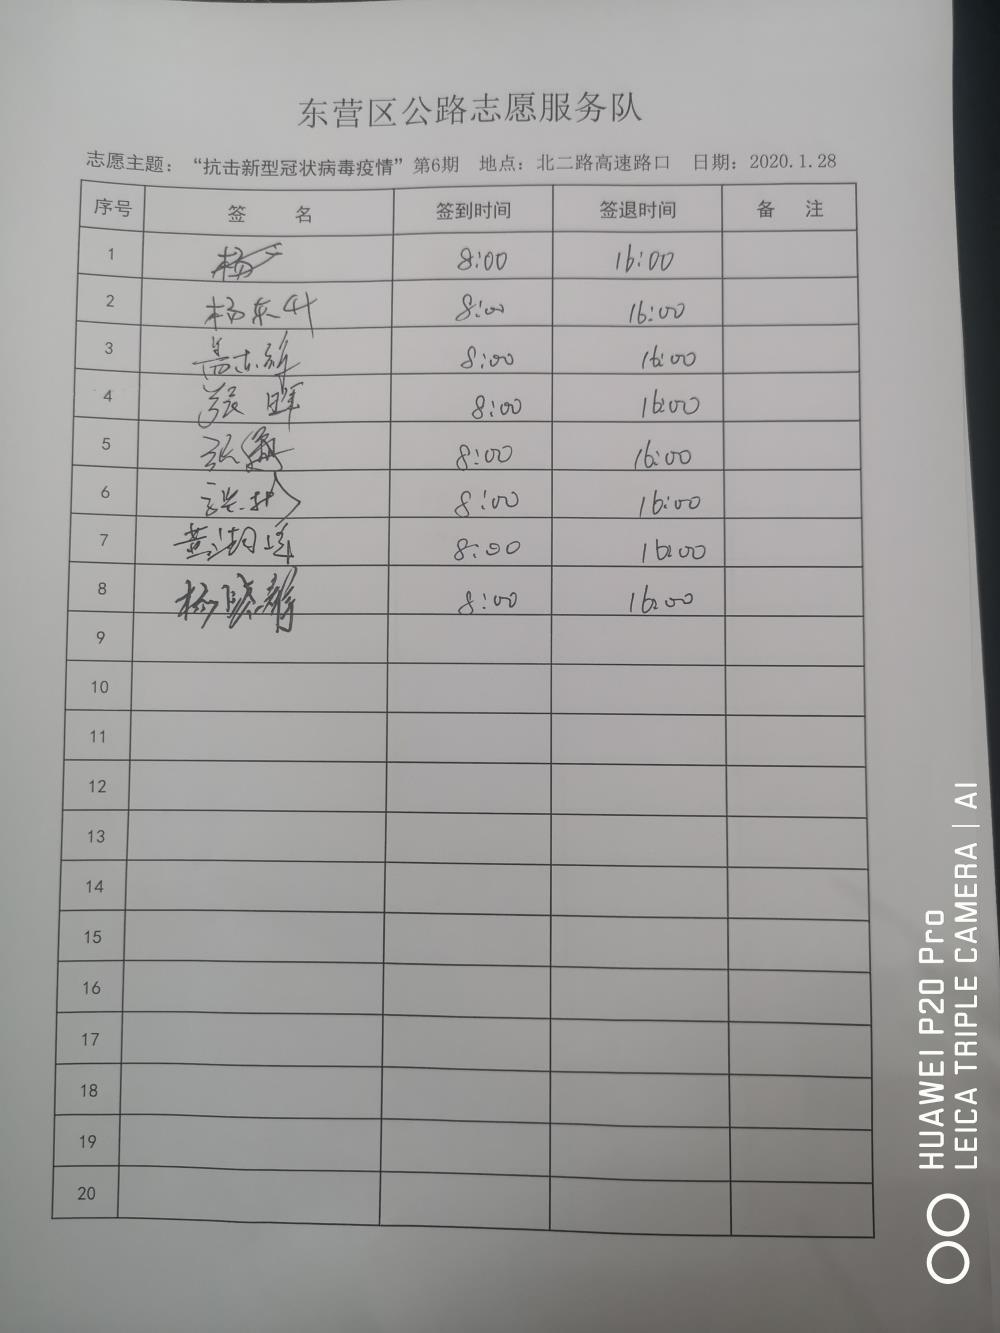 东营区公路志愿服务队
志愿主题：“抗击新型冠状病毒疫情”第6期 地点：北二路高速路口 日期：2020.1.28
序号 签 名 签到时间 签退时间 备 注
1 杨 8:00 16:00
2 杨东升 8:00 16:00
3 盖志 8:00 16:00
4 张晖 8:00 16:00
5 张 8:00 16:00
6 8:00 16:00
7 黄湖 8:00 16:00
8 杨晓静 8:00 16:00
9
10
11
12
13
14
15
16
17
18
19
20
HUAWEI P20 Pro
LEICA TRIPLE CAMERA | AI